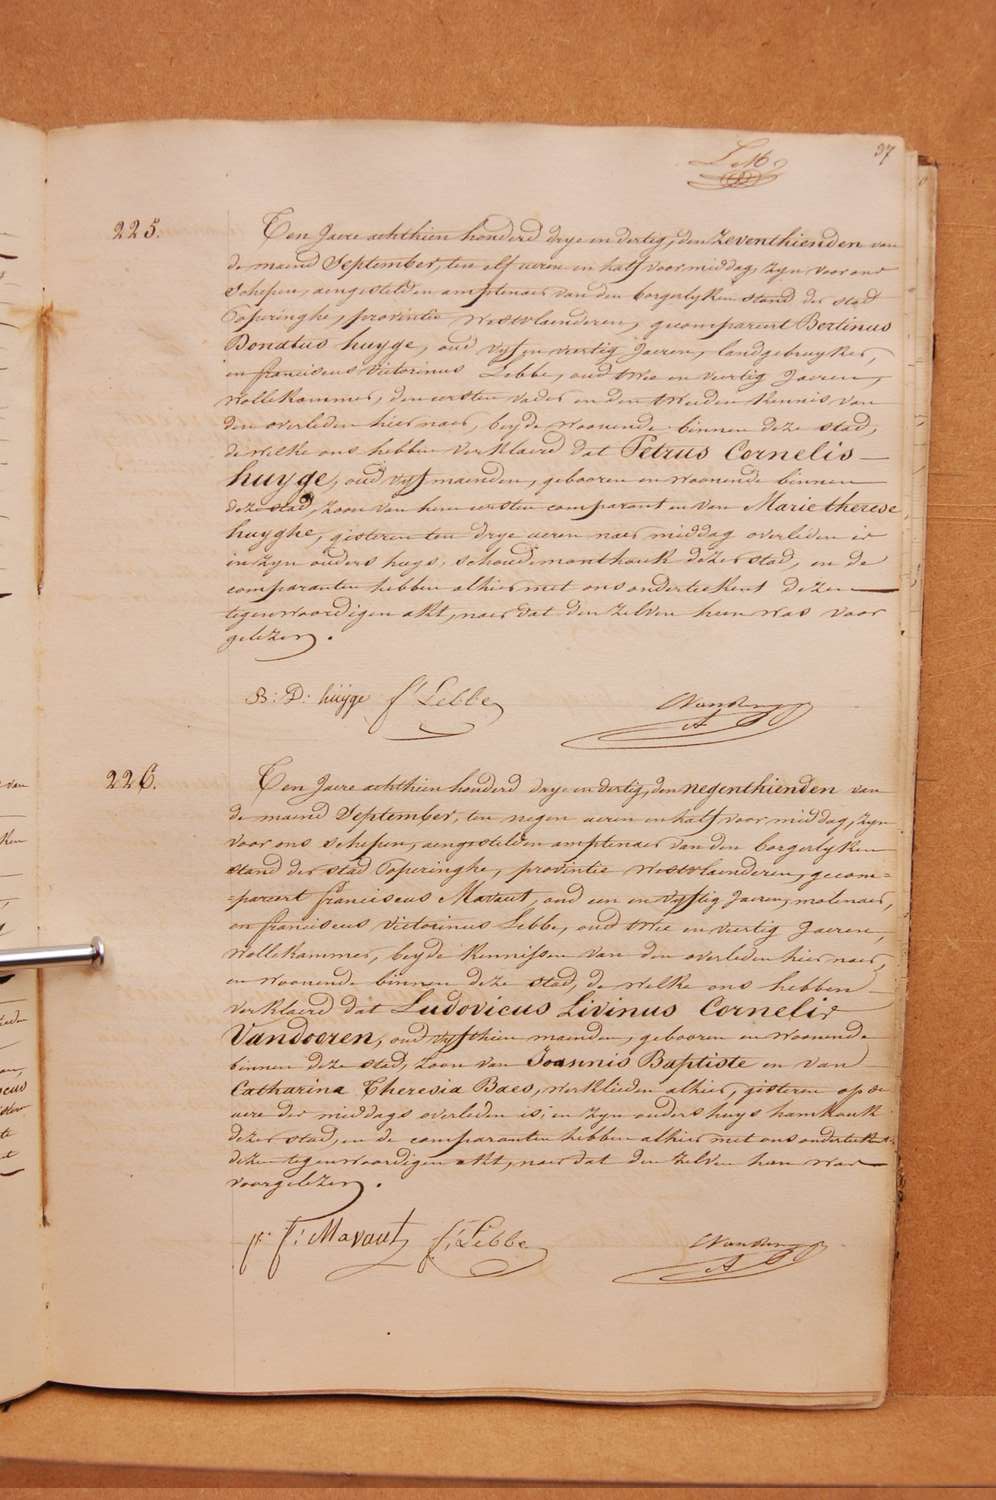 37
225.
Ten Jaere achthien honderd drye en dertig, den zeventhienden van
de maend September, ten elf ueren en half voormiddag, zyn voor ons
Schepen, aengestelden amptenaer van den borgerlyken stand der stad
Poperinghe, provintie Westvlaenderen, gecompareert Bertinus
Donatus huyge, oud vyf en veertig Jaeren, landgebruyker,
en franciscus Victorinus Lebbe, oud twee en veertig Jaeren,
wollekammer, den eersten vader en den tweeden kennis van
den overleden hier naer, beyde woonende binnen deze stad,
de welke ons hebben verklaerd dat Petrus Cornelis
huyge, oud vyf maenden, gebooren en woonende binnen
deze stad, zoon van hem eersten comparant en van Marie therese
huyghe, gisteren ten drye ueren naer middag overleden is
in zyn ouders huys, schoudemonthouk dezer stad, en de
comparanten hebben alhier met ons onderteekent dezen
tegenwoordigen akt, naer dat den zelven hun was voor
gelezen.
B: D: huyge f Lebbe
226.
Ten Jaere achthien honderd drye en dertig, den negenthienden van
de maend September, ten negen ueren en half voor middag, zyn
voor ons schepen, aengestelden amptenaer van den borgerlyken
stand der stad Poperinghe, provintie Westvlaenderen, gecom=
=pareert franciscus Mavaut, oud een en vyftig Jaeren, molenaer,
en franciscus Victorinus Lebbe, oud twee en veertig Jaeren,
wollekammer, beyde kennissen van den overleden hier naer,
en woonende binnen deze stad, de welke ons hebben
verklaerd dat Ludovicus Livinus Cornelis
Vandooren, oud vyfthien maenden, gebooren en woonende
binnen deze stad, zoon van Joannis Baptiste en van
Catharina Theresia Baes, werklieden alhier, gisteren op de
uere der middags overleden is, in zyn ouders huys hamhouk
dezer stad, en de comparanten hebben alhier met ons onderteekent
dezen tegenwoordigen akt, naer dat den zelven hun was
voorgelezen.
f: Mavaut f: Lebbe